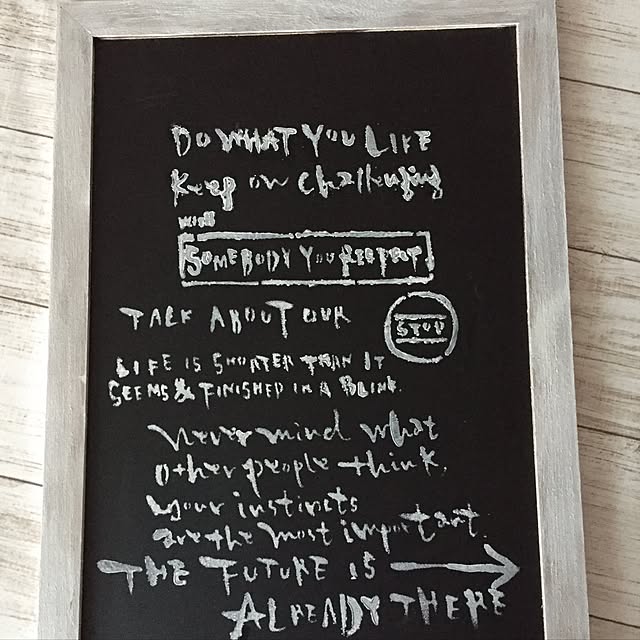 DO WHAT YOU LIKE
Keep on challenging
WITH
SOMEBODY YOU RESPECT
TALK ABOUT OUR
LIFE IS SHORTER THAN IT
SEEMS & FINISHED IN A BLINK.
Never mind what
other people think,
your instincts
are the most important.
THE FUTURE IS
ALREADY THERE